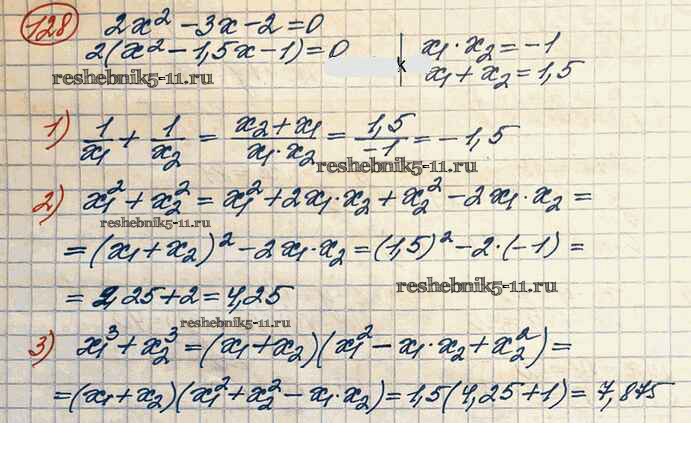 128 2x² - 3x - 2 = 0
2(x² - 1,5x - 1) = 0
x₁ · x₂ = -1
x₁ + x₂ = 1,5
reshebnik5-11.ru
1) 1/x₁ + 1/x₂ = (x₂ + x₁)/(x₁ · x₂) = 1,5/-1 = -1,5
reshebnik5-11.ru
2) x₁² + x₂² = x₁² + 2x₁ · x₂ + x₂² - 2x₁ · x₂ =
reshebnik5-11.ru
= (x₁ + x₂)² - 2x₁ · x₂ = (1,5)² - 2 · (-1) =
= 2,25 + 2 = 4,25
reshebnik5-11.ru
reshebnik5-11.ru
3) x₁³ + x₂³ = (x₁ + x₂)(x₁² - x₁ · x₂ + x₂²) =
= (x₁ + x₂)(x₁² + x₂² - x₁ · x₂) = 1,5(4,25 + 1) = 7,875